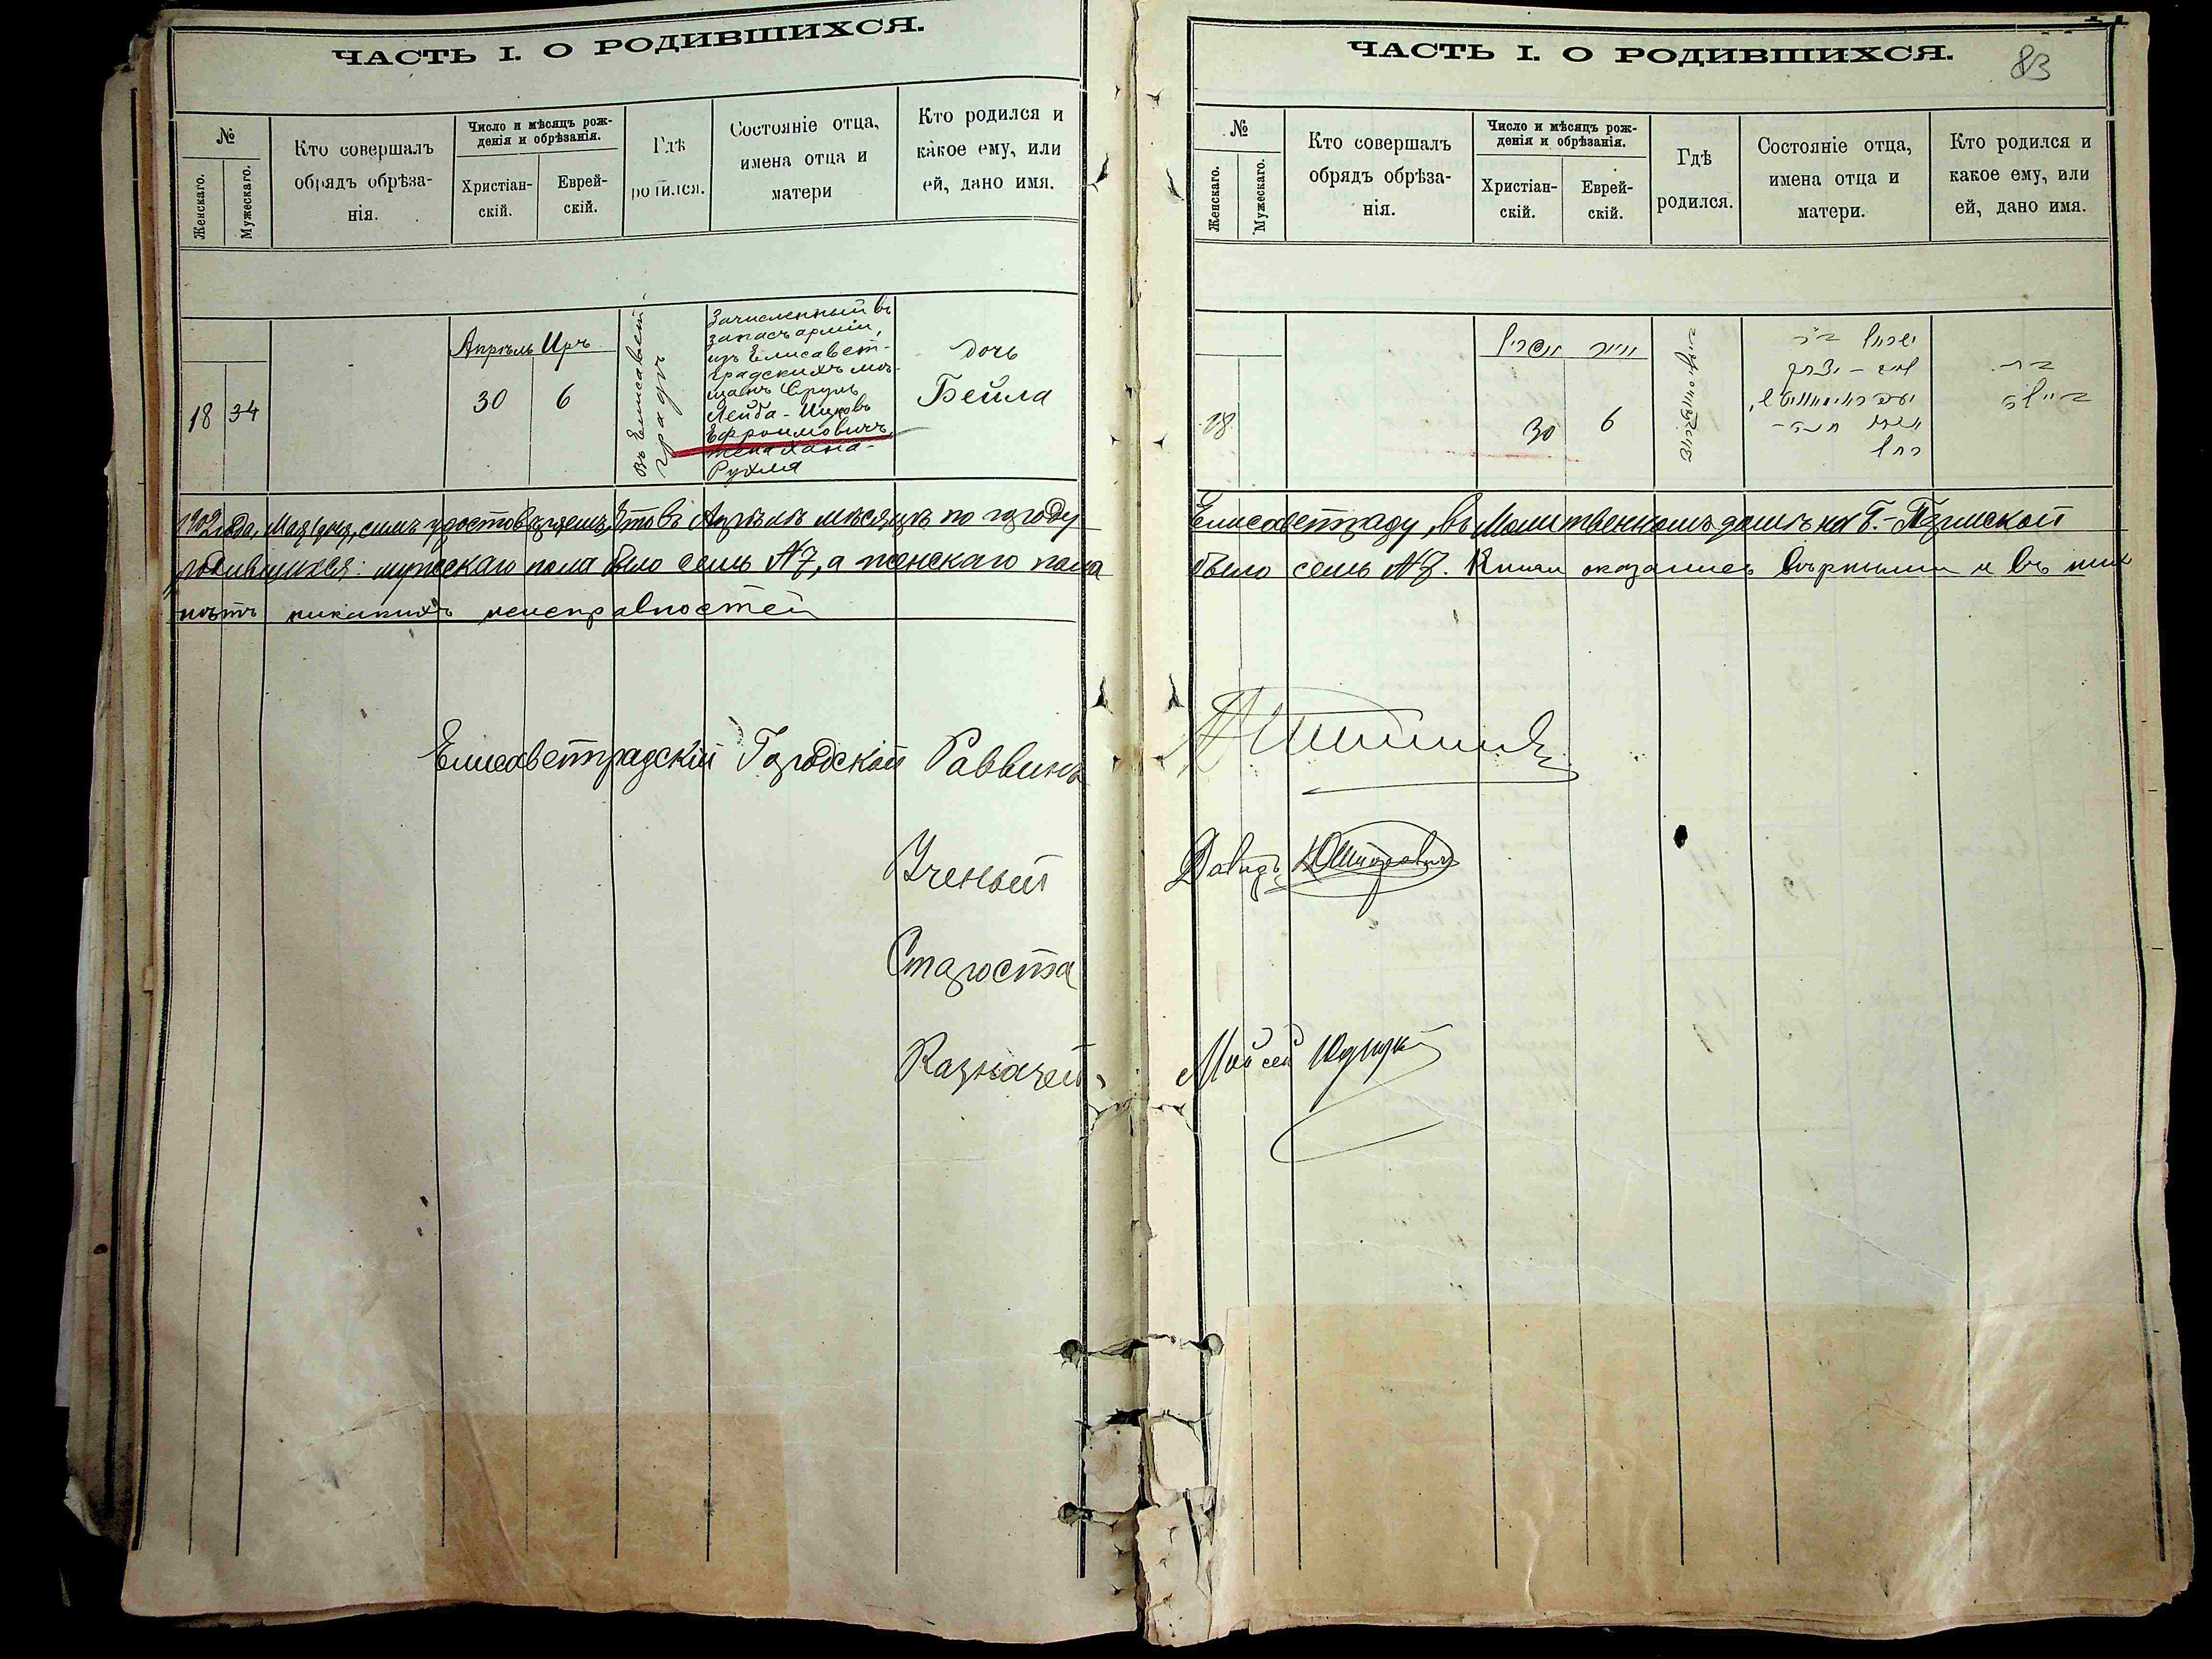 ЧАСТЬ I. О РОДИВШИХСЯ.
№
Женскаго.
Мужескаго.
Кто совершалъ
обрядъ обрѣза-
нія.
Число и мѣсяцъ рож-
денія и обрѣзанія.
Христіан-
скій.
Еврей-
скій.
Гдѣ
родился.
Состояніе отца,
имена отца и
матери
Кто родился и
какое ему, или
ей, дано имя.
18
34
Апрѣль
30
Иръ
6
въ Елисавет-
градѣ
Зачисленный въ
запасъ арміи,
изъ Елисавет-
градскихъ мѣ-
щанъ Сруль
Лейба-Ицковъ
Ефроимовичъ,
жена Хана-
Рухля
дочь
Бейла
1902 года, Мая 1 дня, симъ удостовѣряемъ, что въ Апрѣлѣ мѣсяцѣ по городу
родившихся: мужескаго пола было семь №7, а женскаго пола
нѣтъ никакихъ неисправностей
Елисаветградскій Городской Раввинъ
Ученый
Староста
Казначей
ЧАСТЬ I. О РОДИВШИХСЯ.
83
№
Женскаго.
Мужескаго.
Кто совершалъ
обрядъ обрѣза-
нія.
Число и мѣсяцъ рож-
денія и обрѣзанія.
Христіан-
скій.
Еврей-
скій.
Гдѣ
родился.
Состояніе отца,
имена отца и
матери.
Кто родился и
какое ему, или
ей, дано имя.
18
אפריל
30
אייר
6
ישראל
רחל
בת
ביילה
Елисаветграду, въ Молитвенномъ домѣ на Б.-Пермской
было семь №7. Книги оказались вѣрными и въ нихъ
Давидъ
Мойсей